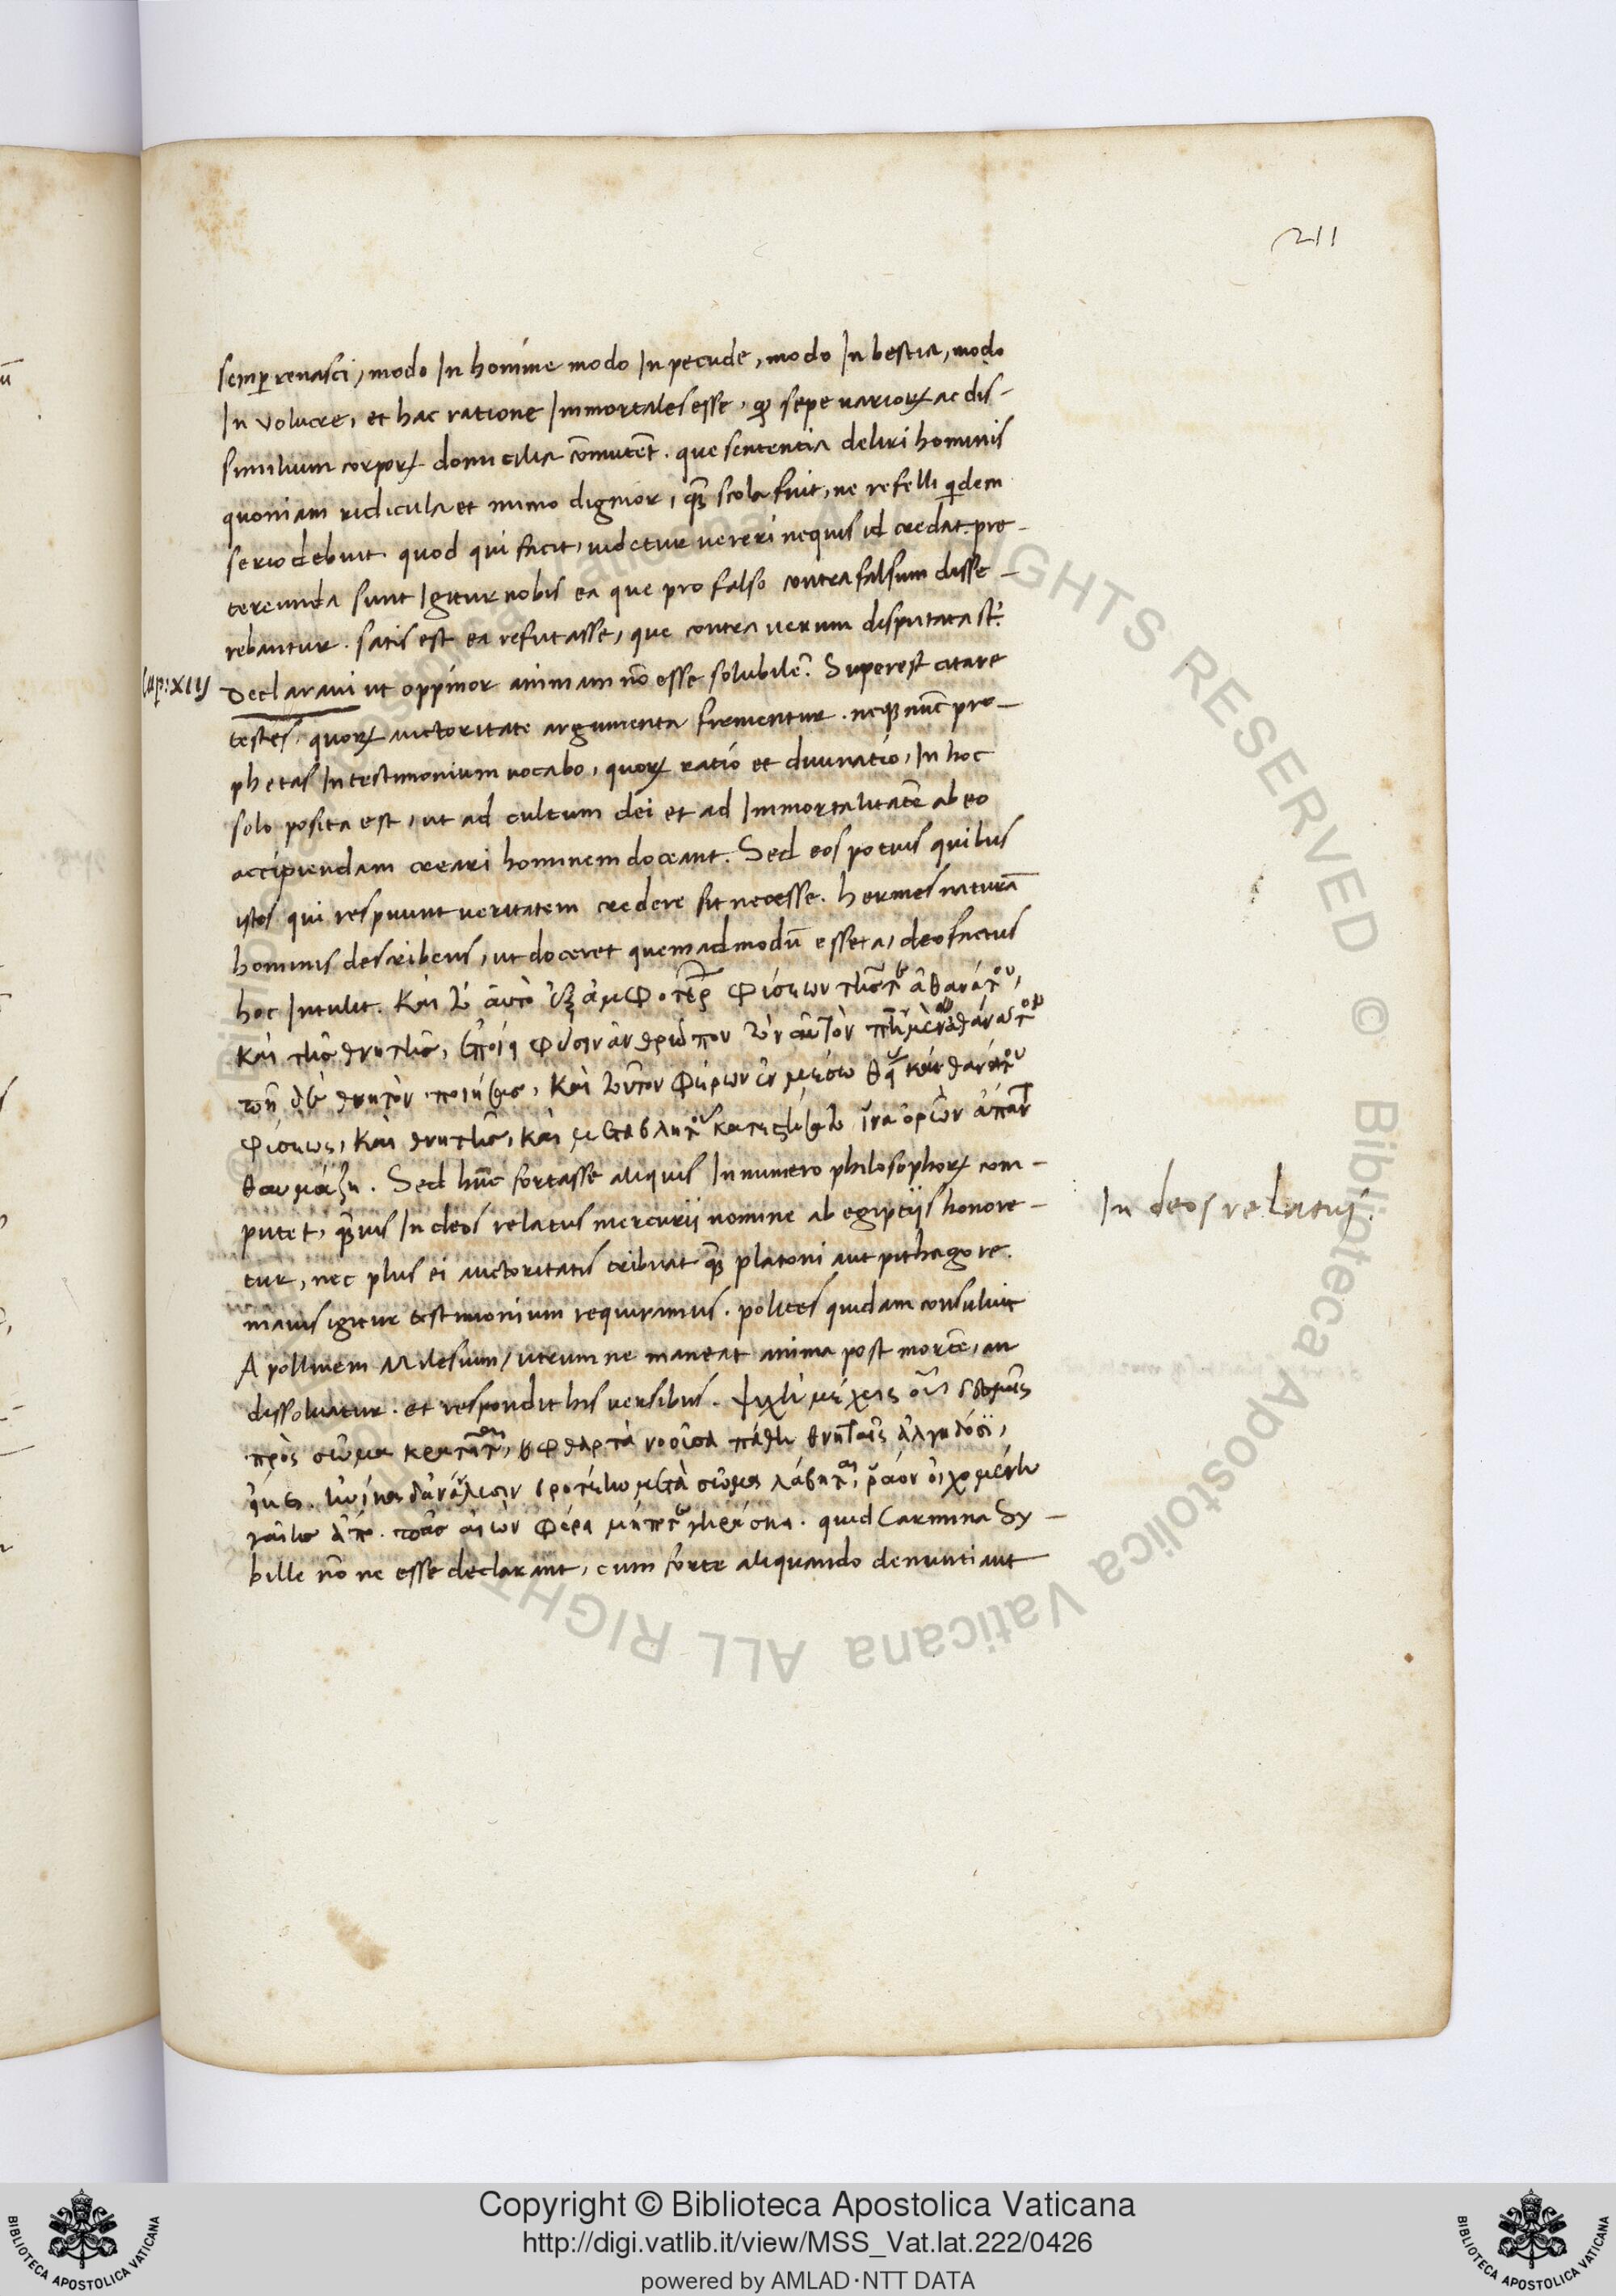 211
semp renasci, modo In homine modo In pecude, modo In bestia, modo
In volucre, et hac ratione Immortales esse, qđ sepe varioꝝ ac dis-
similium corpoꝝ domicilia cōmutēt. que sententia deliri hominis
quoniam ridicula et mimo dignior, quā scola fuit, ne refelli qidem
serio debuit. quod qui facit, videtur vereri nequis id credat. pre-
tereunda sunt Igitur nobis ea que pro falso contra falsum disse-
rebantur. satis est ea refutasse, que contra verum disputata st.
Cap: XIII
Declaravi ut oppinor animam nō esse solubilē. Superest citare
testes, quoꝝ auctoritate argumenta firmentur. neqꝫ nūc pro-
phetas In testimonium vocabo, quoꝝ ratio et divinatio, In hoc
solo posita est, ut ad cultum dei et ad Immortalitatē ab eo
accipiendam creari hominem doceant. Sed eos potius quibus
istos qui respuunt veritatem credere sit necesse. hermes naturā
hominis describens, ut doceret quemadmodū esset a, deo factus
hoc Intulit. Και
Και
φύσεως, Και θνητῆς, Και
θαυμάζῃ. Sed hūc fortasse aliquis In numero philosophoꝝ com-
putet, quāvis In deos relatus mercurii nomine ab egiptiis honore-
In deos relatus.
tur, nec plus ei auctoritatis tribuat quā platoni aut pithagore.
maius igitur testimonium requiramus. polites quidam consuluit
Apollinem Milesium, utrumne maneat anima post mortē, an
dissolvatur. et respondit his versibus.
πρὸς σῶμα
quid Carmina Sy-
bille nō ne esse declarant, cum forte aliquando denuntiant
Copyright © Biblioteca Apostolica Vaticana
http://digi.vatlib.it/view/MSS_Vat.lat.222/0426
powered by AMLAD·NTT DATA